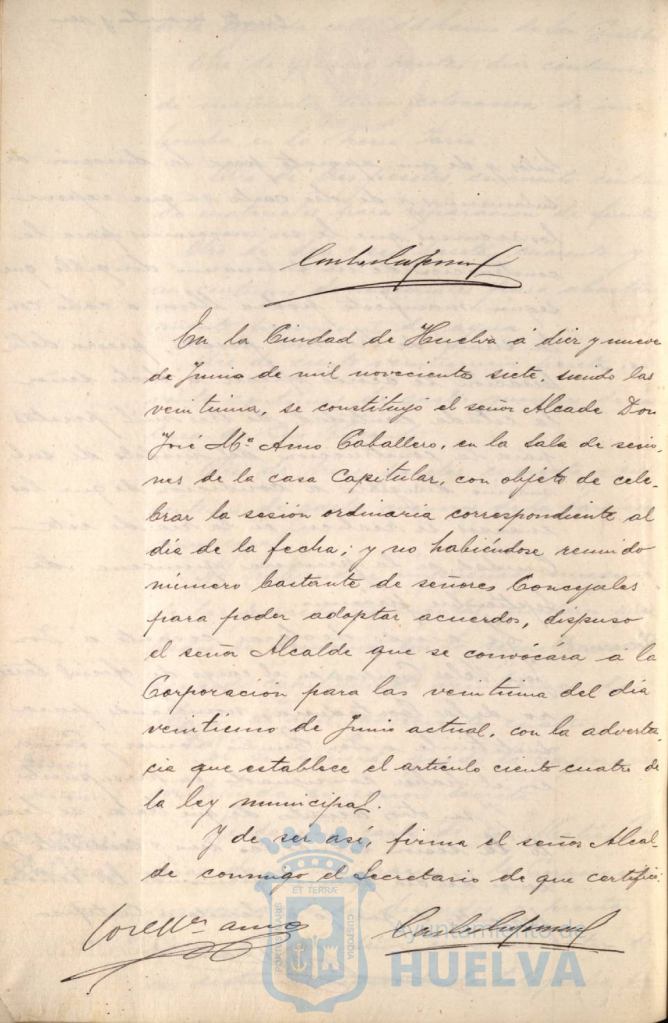 En la Ciudad de Huelva á diez y nueve
de Junio de mil novecientos siete, siendo las
veintiuna, se constituyó el señor Alcade Don
José Mª Amo Caballero, en la Sala de sesio-
nes de la casa Capitular, con objeto de cele-
brar la sesión ordinaria correspondiente al
día de la fecha; y no habiéndose reunido
número bastante de señores Concejales
para poder adoptar acuerdos, dispuso
el señor Alcalde que se convocára á la
Corporación para las veintiuna del día
veintiuno de Junio actual, con la adverten-
cia que establece el artículo ciento cuatro de
la ley municipal.
Y de ser así, firma el señor Alcal-
de conmigo el Secretario de que certifico:
José Mª Amo
ET TERRÆ
PORTUS MARIS
CUSTODIA
Ayuntamiento de
HUELVA